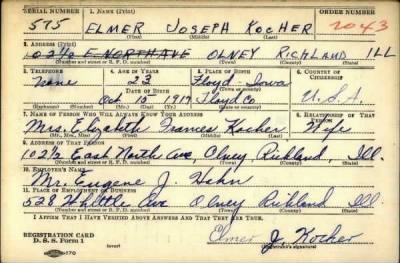 SERIAL NUMBER 1. NAME (Print) ORDER NUMBER
575 ELMER JOSEPH KOCHER 1043
(First) (Middle) (Last)
2. ADDRESS (Print)
102½ E NORTH AVE OLNEY RICHLAND ILL
(Number and street or R. F. D. number) (Town) (County) (State)
3. TELEPHONE 4. AGE IN YEARS 5. PLACE OF BIRTH 6. COUNTRY OF CITIZENSHIP
none 23 Floyd - Iowa
DATE OF BIRTH
Oct 1917 Floyd Co U.S.A.
(Exchange) (Number) (Mo.) (Day) (Yr.) (Town) (County)
7. NAME OF PERSON WHO WILL ALWAYS KNOW YOUR ADDRESS 8. RELATIONSHIP OF THAT PERSON
Mrs. Elizabeth Frances Kocher Wife
(Mr., Mrs., Miss) (First) (Middle) (Last)
9. ADDRESS OF THAT PERSON
102½ East North Ave, Olney Richland, Ill.
(Number and street or R. F. D. number) (Town) (County) (State)
10. EMPLOYER'S NAME
Mr. Eugene J. Hahn
11. PLACE OF EMPLOYMENT OR BUSINESS
528 Whittle Ave Olney Richland Ill
(Number and street or R. F. D. number) (Town) (County) (State)
I AFFIRM THAT I HAVE VERIFIED ABOVE ANSWERS AND THAT THEY ARE TRUE.
REGISTRATION CARD
D. S. S. Form 1 (over) Elmer J. Kocher
(Registrant's signature)